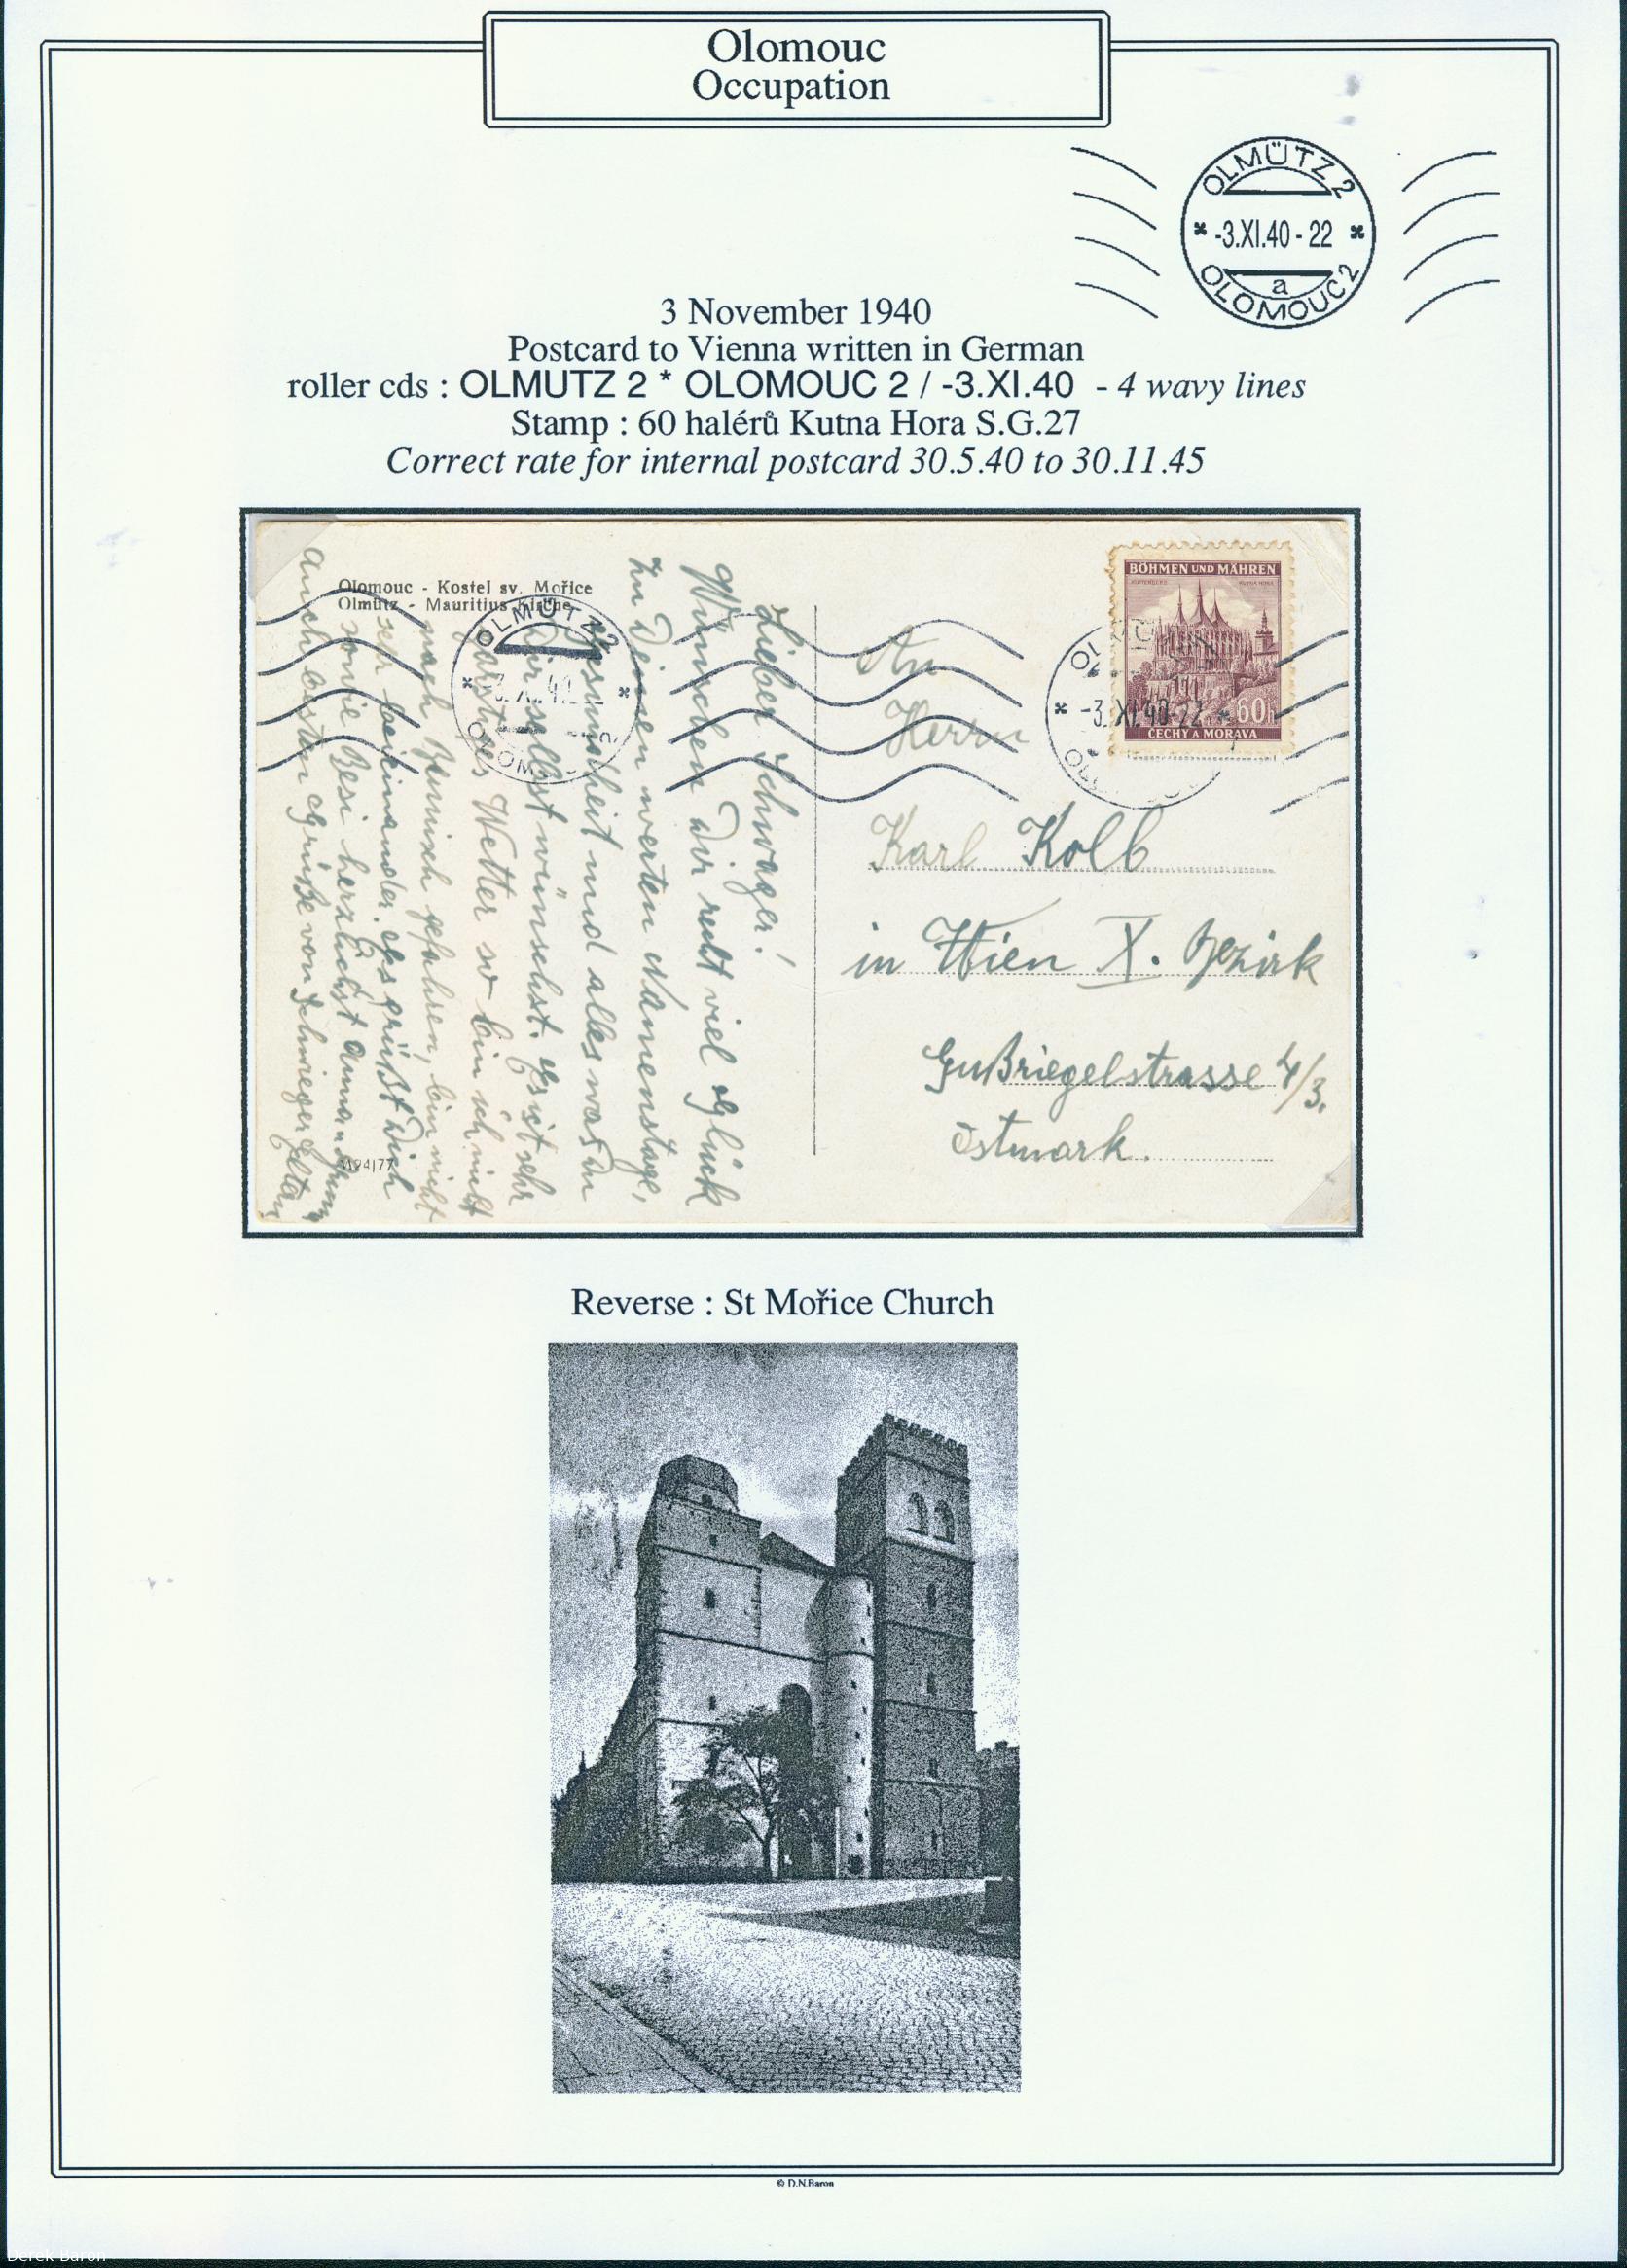 Olomouc
Occupation
OLMÜTZ 2
-3.XI.40 - 22
a
OLOMOUC 2
3 November 1940
Postcard to Vienna written in German
roller cds : OLMUTZ 2 * OLOMOUC 2 / -3.XI.40 - 4 wavy lines
Stamp : 60 halérů Kutna Hora S.G.27
Correct rate for internal postcard 30.5.40 to 30.11.45
Olomouc - Kostel sv. Mořice
Olmütz - Mauritius-Kirche
OLMÜTZ 2
Lieber Schwager!
Wünschen Dir recht viel Glück
zu Deinen werten Namenstage,
Gesundheit und alles was Du
Dir selbst wünschst. Es ist sehr
Wetter so bin ich nicht
nach gefahren, bin nicht
beieinander. Es grüßt Dich
sowie Besi herzlichst
Auch besten Grüße von Schwiegereltern
M24177
BÖHMEN UND MÄHREN
60h
ČECHY A MORAVA
-3.XI.40-22
An
Herrn
Karl Kolb
in Wien X. Bezirk
Gußriegelstrasse 4/3.
Ostmark.
Reverse : St Mořice Church
© D.N.Baron
Derek Baron